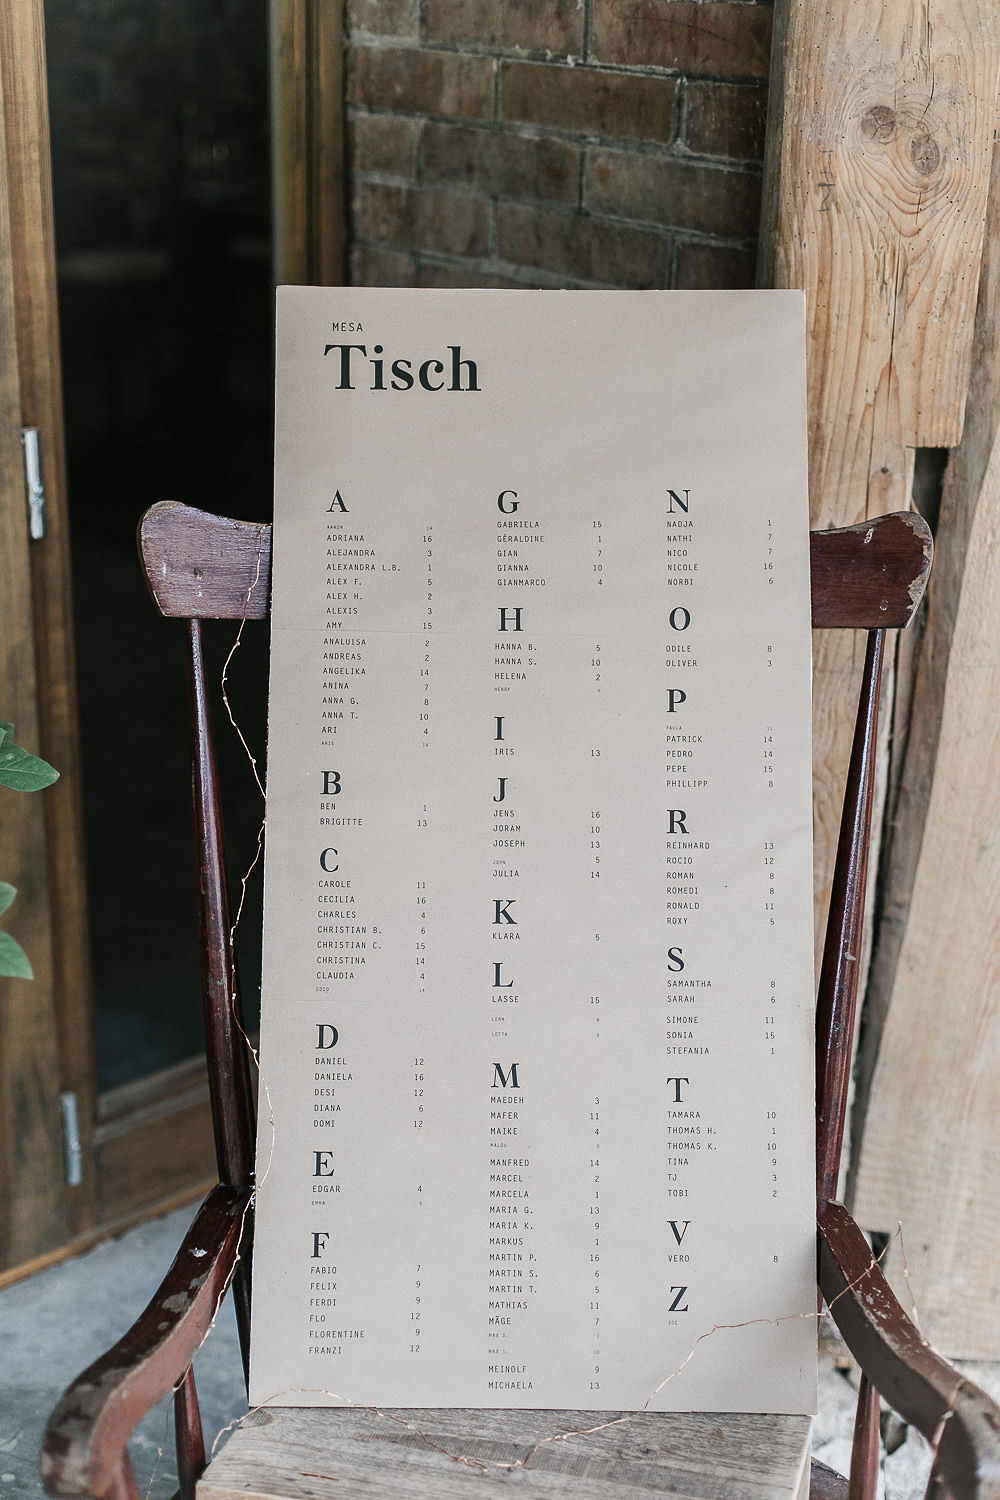 MESA
Tisch
A
AARON 14
ADRIANA 16
ALEJANDRA 3
ALEXANDRA L.B. 1
ALEX F. 5
ALEX H. 2
ALEXIS 3
AMY 15
ANALUISA 2
ANDREAS 2
ANGELIKA 14
ANINA 7
ANNA G. 8
ANNA T. 10
ARI 4
ARIS 14
B
BEN 1
BRIGITTE 13
C
CAROLE 11
CECILIA 16
CHARLES 4
CHRISTIAN B. 6
CHRISTIAN C. 15
CHRISTINA 14
CLAUDIA 4
COCO 14
D
DANIEL 12
DANIELA 16
DESI 12
DIANA 6
DOMI 12
E
EDGAR 4
EMMA
F
FABIO 7
FELIX 9
FERDI 9
FLO 12
FLORENTINE 9
FRANZI 12
G
GABRIELA 15
GÉRALDINE 1
GIAN 7
GIANNA 10
GIANMARCO 4
H
HANNA B. 5
HANNA S. 10
HELENA 2
HENRY
I
IRIS 13
J
JENS 16
JORAM 10
JOSEPH 13
JOHN 5
JULIA 14
K
KLARA 5
L
LASSE 15
LENN
LOTTA
M
MAEDEH 3
MAFER 11
MAIKE 4
MALOU
MANFRED 14
MARCEL 2
MARCELA 1
MARIA G. 13
MARIA K. 9
MARKUS 1
MARTIN P. 16
MARTIN S. 6
MARTIN T. 5
MATHIAS 11
MÄGE 7
MAX
MAX S. 10
MEINOLF 9
MICHAELA 13
N
NADJA 1
NATHI 7
NICO 7
NICOLE 16
NORBI 6
O
ODILE 8
OLIVER 3
P
PAULA 11
PATRICK 14
PEDRO 14
PEPE 15
PHILLIPP 8
R
REINHARD 13
ROCIO 12
ROMAN 8
ROMEDI 8
RONALD 11
ROXY 5
S
SAMANTHA 8
SARAH 6
SIMONE 11
SONIA 15
STEFANIA 1
T
TAMARA 10
THOMAS H. 1
THOMAS K. 10
TINA 9
TJ 3
TOBI 2
V
VERO 8
Z
ZOE